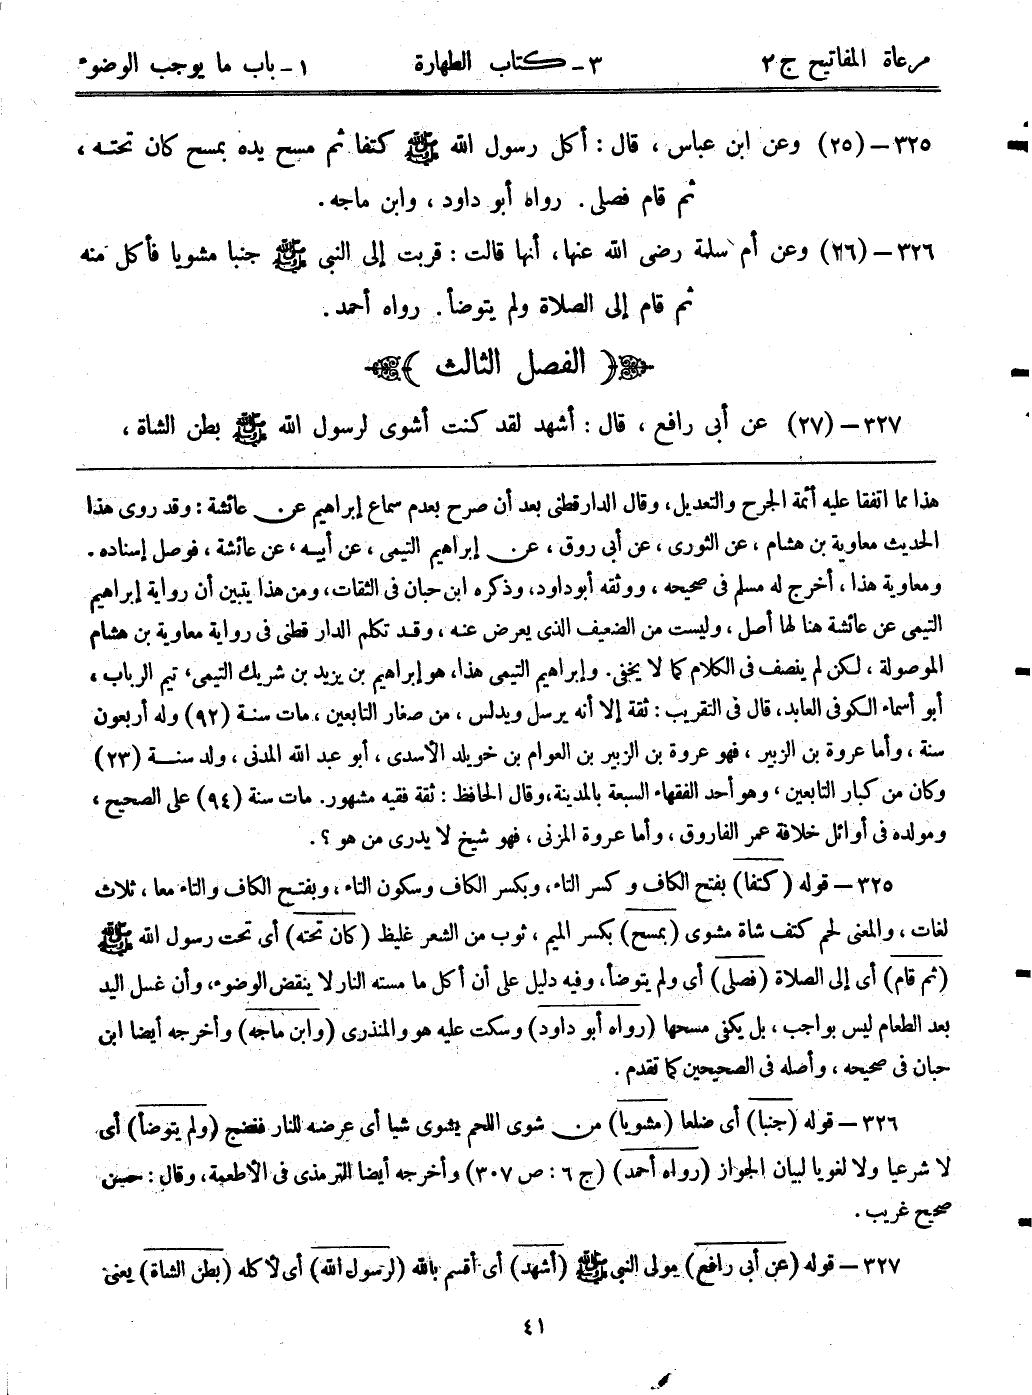 مرعاة المفاتيح ج ٢ ٣ - كتاب الطهارة ١ - باب ما يوجب الوضوء
٣٢٥ - (٢٥) وعن ابن عباس ، قال : أكل رسول الله ﷺ كتفا ثم مسح يده بمسح كان تحته ،
ثم قام فصلى . رواه أبو داود ، وابن ماجه .
٣٢٦ - (٢٦) وعن أم سلمة رضى الله عنها ، أنها قالت : قربت إلى النبى ﷺ جنبا مشويا فأكل منه
ثم قام إلى الصلاة ولم يتوضأ . رواه أحمد .
( الفصل الثالث )
٣٢٧ - (٢٧) عن أبى رافع ، قال : أشهد لقد كنت أشوى لرسول الله ﷺ بطن الشاة ،
هذا مما اتفقا عليه أئمة الجرح والتعديل ، وقال الدارقطنى بعد أن صرح بعدم سماع إبراهيم عن عائشة : وقد روى هذا
الحديث معاوية بن هشام ، عن الثورى ، عن أبى روق ، عن إبراهيم التيمى ، عن أبيه ، عن عائشة ، فوصل إسناده .
ومعاوية هذا ، أخرج له مسلم فى صحيحه ، ووثقه أبو داود ، وذكره ابن حبان فى الثقات ، ومن هذا يتبين أن رواية إبراهيم
التيمى عن عائشة هنا لها أصل ، وليست من الضعيف الذى يعرض عنه ، وقد تكلم الدار قطنى فى رواية معاوية بن هشام
الموصولة ، لكن لم ينصف فى الكلام كما لا يخفى . وإبراهيم التيمى هذا ، هو إبراهيم بن يزيد بن شريك التيمى ، تيم الرباب ،
أبو أسماء الكوفى العابد ، قال فى التقريب : ثقة إلا أنه يرسل ويدلس ، من صغار التابعين ، مات سنة (٩٢) وله أربعون
سنة ، وأما عروة بن الزبير ، فهو عروة بن الزبير بن العوام بن خويلد الأسدى ، أبو عبد الله المدنى ، ولد سنة (٢٣)
وكان من كبار التابعين ، وهو أحد الفقهاء السبعة بالمدينة ، وقال الحافظ : ثقة فقيه مشهور . مات سنة (٩٤) على الصحيح ،
ومولده فى أوائل خلافة عمر الفاروق ، وأما عروة المزنى ، فهو شيخ لا يدرى من هو ؟ .
٣٢٥ - قوله (كتفا) بفتح الكاف و كسر التاء ، وبكسر الكاف وسكون التاء ، وبفتح الكاف والتاء معا ، ثلاث
لغات ، والمعنى لحم كتف شاة مشوى (بمسح) بكسر الميم ، ثوب من الشعر غليظ (كان تحته) أى تحت رسول الله ﷺ
(ثم قام) أى إلى الصلاة (فصلى) أى ولم يتوضأ ، وفيه دليل على أن أكل ما مسته النار لا ينقض الوضوء ، وأن غسل اليد
بعد الطعام ليس بواجب ، بل يكفى مسحها (رواه أبو داود) وسكت عليه هو والمنذرى (وابن ماجه) وأخرجه أيضا ابن
حبان فى صحيحه ، وأصله فى الصحيحين كما تقدم .
٣٢٦ - قوله (جنبا) أى ضلعا (مشويا) من شوى اللحم يشوى شيا أى عرضه للنار فنضج (ولم يتوضأ) أى
لا شرعيا ولا لغويا لبيان الجواز (رواه أحمد) (ج ٦ : ص ٣٠٧) وأخرجه أيضا الترمذى فى الأطعمة ، وقال : حسن
صحيح غريب .
٣٢٧ - قوله (عن أبى رافع) مولى النبى ﷺ (أشهد) أى أقسم بالله (لرسول الله) أى لأكله (بطن الشاة) يعنى
٤١